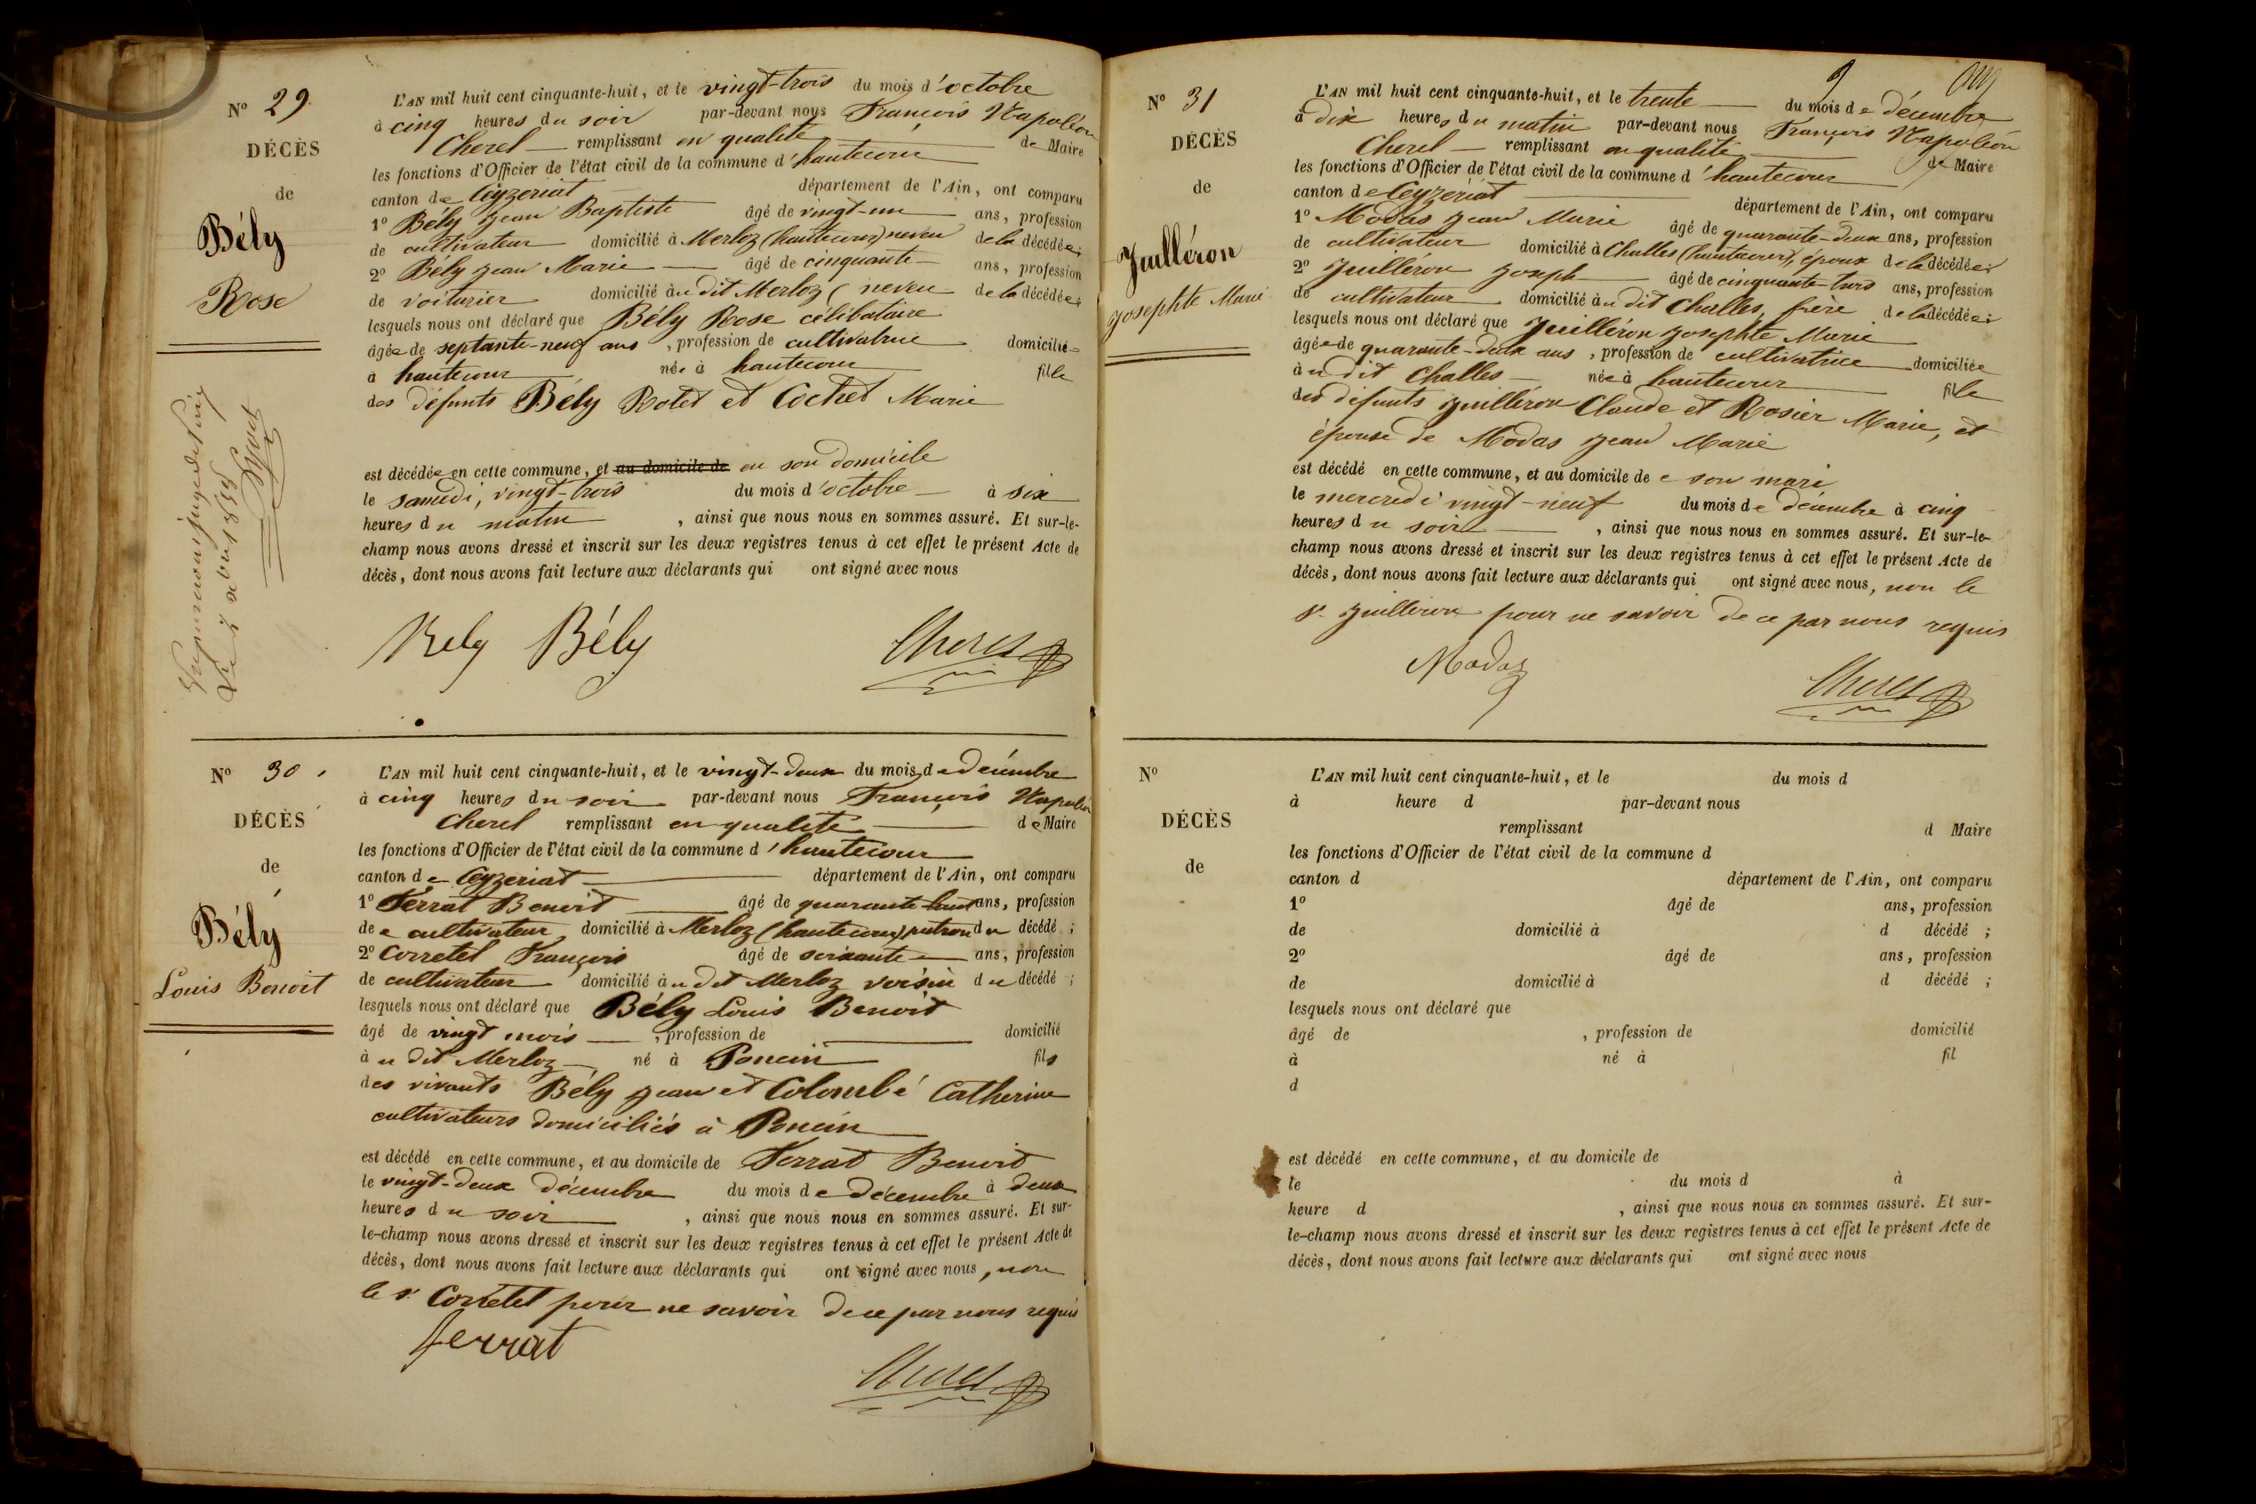 N° 29.
DÉCÈS
de
Bély
Rose
L'AN mil huit cent cinquante-huit, et le vingt-trois du mois d'octobre
à cinq heures du soir par-devant nous François Napoléon
Cherel remplissant en qualité de Maire
les fonctions d'Officier de l'état civil de la commune d'hautecour
canton de Ceyzeriat département de l'Ain, ont comparu
1° Bély Jean Baptiste âgé de vingt-un ans, profession
de cultivateur domicilié à Merloz (hautecour) neveu de la décédée;
2° Bély Jean Marie âgé de cinquante ans, profession
de voiturier domicilié au dit Merloz, neveu de la décédée;
lesquels nous ont déclaré que Bély Rose célibataire
âgée de septante-neuf ans, profession de cultivatrice domiciliée
à hautecour née à hautecour fille
des défunts Bély Rolet et Cochet Marie
est décédée en cette commune, et au domicile de en son domicile
le samedi, vingt-trois du mois d'octobre à six
heures du matin, ainsi que nous nous en sommes assuré. Et sur-le-
champ nous avons dressé et inscrit sur les deux registres tenus à cet effet le présent Acte de
décès, dont nous avons fait lecture aux déclarants qui ont signé avec nous
Bely Bély Cherel
N° 30
DÉCÈS
de
Bély
Louis Benoit
L'AN mil huit cent cinquante-huit, et le vingt-deux du mois de décembre
à cinq heures du soir par-devant nous François Napoléon
Cherel remplissant en qualité de Maire
les fonctions d'Officier de l'état civil de la commune d'hautecour
canton de Ceyzeriat département de l'Ain, ont comparu
1° Ferrat Benoit âgé de quarante-huit ans, profession
de cultivateur domicilié à Merloz (hautecour) patron du décédé;
2° Corretel François âgé de soixante ans, profession
de cultivateur domicilié au dit Merloz voisin du décédé;
lesquels nous ont déclaré que Bély Louis Benoit
âgé de vingt mois, profession de domicilié
au dit Merloz né à Poncin fils
des vivants Bély Jean et Colombé Catherine
cultivateurs domiciliés à Poncin
est décédé en cette commune, et au domicile de Ferrat Benoit
le vingt-deux décembre du mois de décembre à deux
heures du soir, ainsi que nous nous en sommes assuré. Et sur-
le-champ nous avons dressé et inscrit sur les deux registres tenus à cet effet le présent Acte de
décès, dont nous avons fait lecture aux déclarants qui ont signé avec nous, non
le s. Corretel pour ne savoir de ce par nous requis
ferrat Cherel
N° 31
DÉCÈS
de
Juilléron
Josephte Marie
L'AN mil huit cent cinquante-huit, et le trente du mois de décembre
à dix heures du matin par-devant nous François Napoléon
Cherel remplissant en qualité de Maire
les fonctions d'Officier de l'état civil de la commune d'hautecour
canton de Ceyzériat département de l'Ain, ont comparu
1° Modas Jean Marie âgé de quarante-deux ans, profession
de cultivateur domicilié à Challes (hautecour), époux de la décédée;
2° Juilléron Joseph âgé de cinquante-trois ans, profession
de cultivateur domicilié au dit Challes, frère de la décédée;
lesquels nous ont déclaré que Juilléron Josephte Marie
âgée de quarante-deux ans, profession de cultivatrice domiciliée
au dit Challes née à hautecour fille
des défunts Juilléron Claude et Rosier Marie, et
épouse de Modas Jean Marie
est décédé en cette commune, et au domicile de son mari
le mercredi vingt-neuf du mois de décembre à cinq
heures du soir, ainsi que nous nous en sommes assuré. Et sur-le-
champ nous avons dressé et inscrit sur les deux registres tenus à cet effet le présent Acte de
décès, dont nous avons fait lecture aux déclarants qui ont signé avec nous, non le
s. Juilléron pour ne savoir de ce par nous requis
Modas Cherel
N°
DÉCÈS
de
L'AN mil huit cent cinquante-huit, et le du mois d
à heure d par-devant nous
remplissant d Maire
les fonctions d'Officier de l'état civil de la commune d
canton d département de l'Ain, ont comparu
1° âgé de ans, profession
de domicilié à d décédé ;
2° âgé de ans, profession
de domicilié à d décédé ;
lesquels nous ont déclaré que
âgé de , profession de domicilié
à né à fil
d
est décédé en cette commune, et au domicile de
le du mois d à
heure d , ainsi que nous nous en sommes assuré. Et sur-
le-champ nous avons dressé et inscrit sur les deux registres tenus à cet effet le présent Acte de
décès, dont nous avons fait lecture aux déclarants qui ont signé avec nous